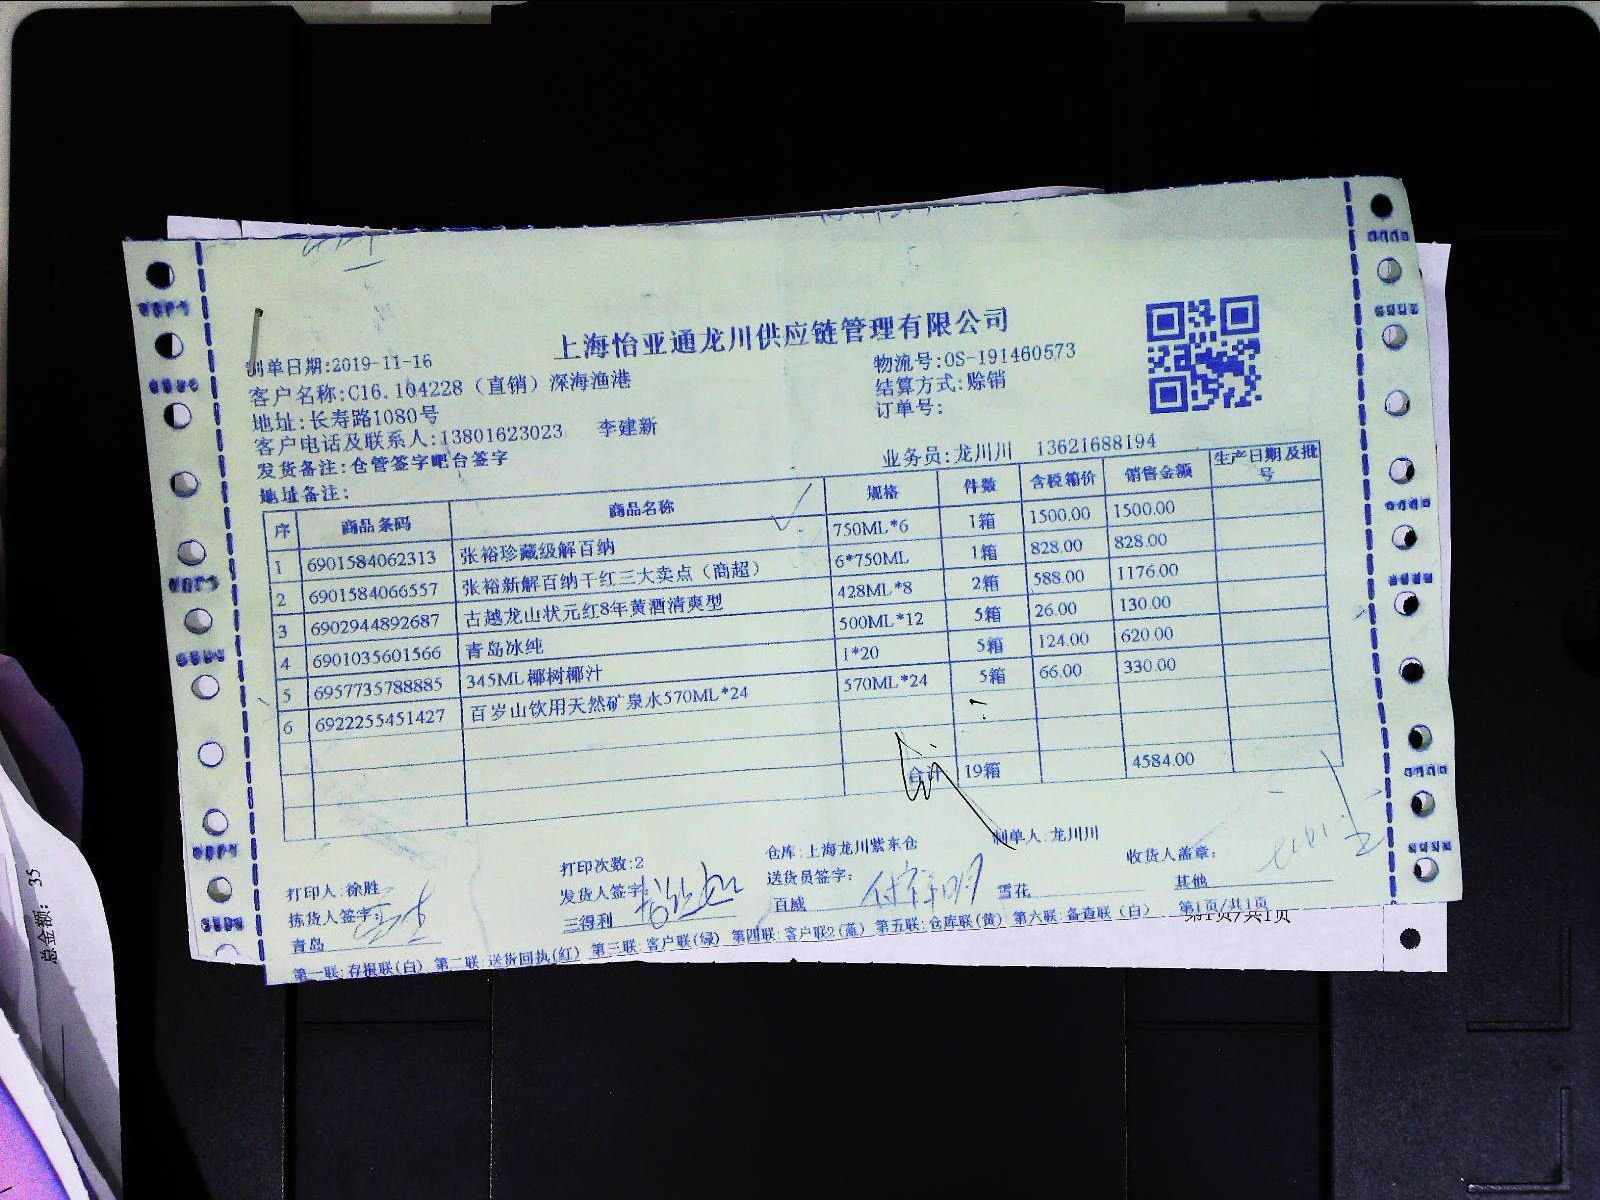 上海怡亚通龙川供应链管理有限公司
制单日期:2019-11-16
物流号:OS-191460573
客户名称:C16.104228（直销）深海渔港
结算方式:赊销
地址:长寿路1080号
订单号:
客户电话及联系人:13801623023 李建新
业务员:龙川川 13621688194
发货备注:仓管签字吧台签字
地址备注:
序 商品条码 商品名称 规格 件数 含税箱价 销售金额 生产日期及批号
1 6901584062313 张裕珍藏级解百纳 750ML*6 1箱 1500.00 1500.00
2 6901584066557 张裕新解百纳干红三大卖点（商超） 6*750ML 1箱 828.00 828.00
3 6902944892687 古越龙山状元红8年黄酒清爽型 428ML*8 2箱 588.00 1176.00
4 6901035601566 青岛冰纯 500ML*12 5箱 26.00 130.00
5 6957735788885 345ML椰树椰汁 1*20 5箱 124.00 620.00
6 6922255451427 百岁山饮用天然矿泉水570ML*24 570ML*24 5箱 66.00 330.00
合计 19箱 4584.00
打印人:徐胜 打印次数:2 仓库:上海龙川紫东仓 制单人:龙川川
拣货人签字: 发货人签字: 送货员签字: 收货人盖章:
青岛 三得利 百威 雪花 其他
第一联:存根联(白) 第二联:送货回执(红) 第三联:客户联(绿) 第四联:客户联2(蓝) 第五联:仓库联(黄) 第六联:备查联(白) 第1页/共1页
第1页/共1页
总金额: 35